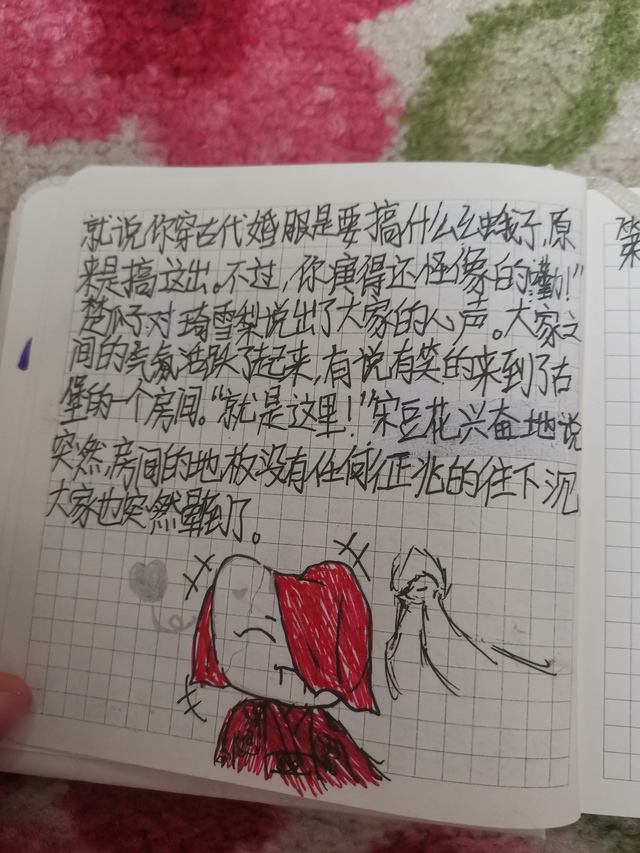 就说你穿古代婚服是要搞什么幺蛾子,原
来是搞这出。不过,你演得还怪像的嘞!"
楚瓜子对琦雪梨说出了大家的心声。大家之
间的气氛活跃了起来,有说有笑的来到了古
堡的一个房间。"就是这里!"宋豆花兴奋地说
突然,房间的地板没有任何征兆的往下沉
大家也突然晕倒了。